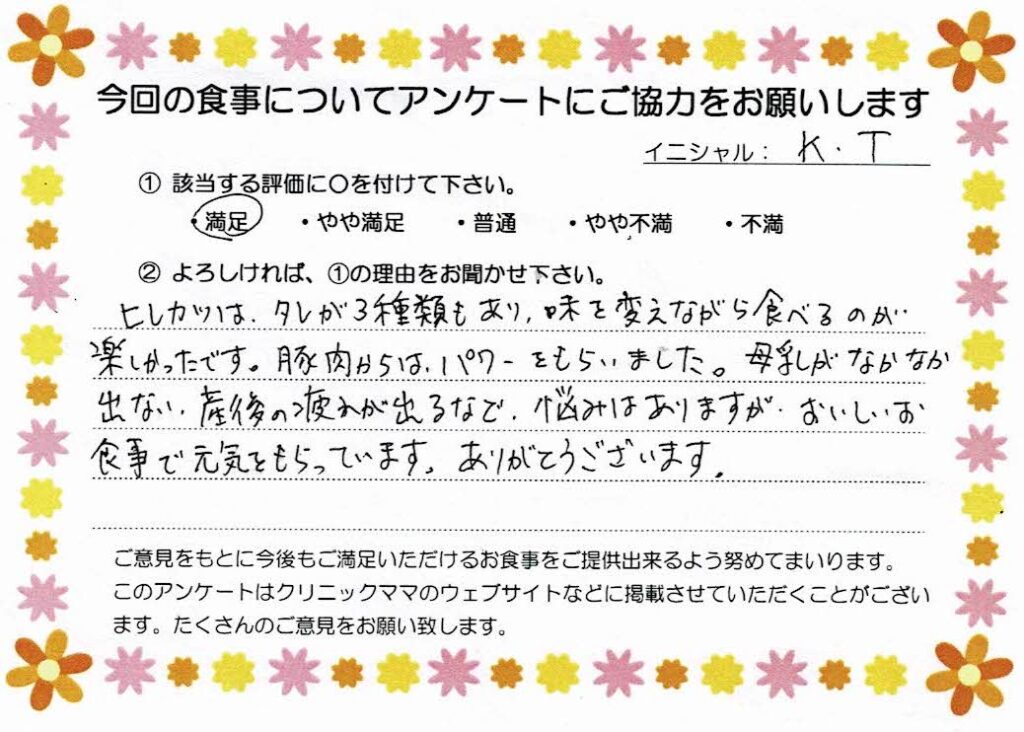 今回の食事についてアンケートにご協力をお願いします
イニシャル： K．T
① 該当する評価に〇を付けて下さい。
・満足 ・やや満足 ・普通 ・やや不満 ・不満
② よろしければ、①の理由をお聞かせ下さい。
ヒレカツは、タレが3種類もあり、味を変えながら食べるのが
楽しかったです。豚肉からは、パワーをもらいました。母乳がなかなか
出ない、産後の疲れが出るなで、悩みはありますが、おいしいお
食事で元気をもらっています。ありがとうございます。
ご意見をもとに今後もご満足いただけるお食事をご提供出来るよう努めてまいります。
このアンケートはクリニックママのウェブサイトなどに掲載させていただくことがござい
ます。たくさんのご意見をお願い致します。